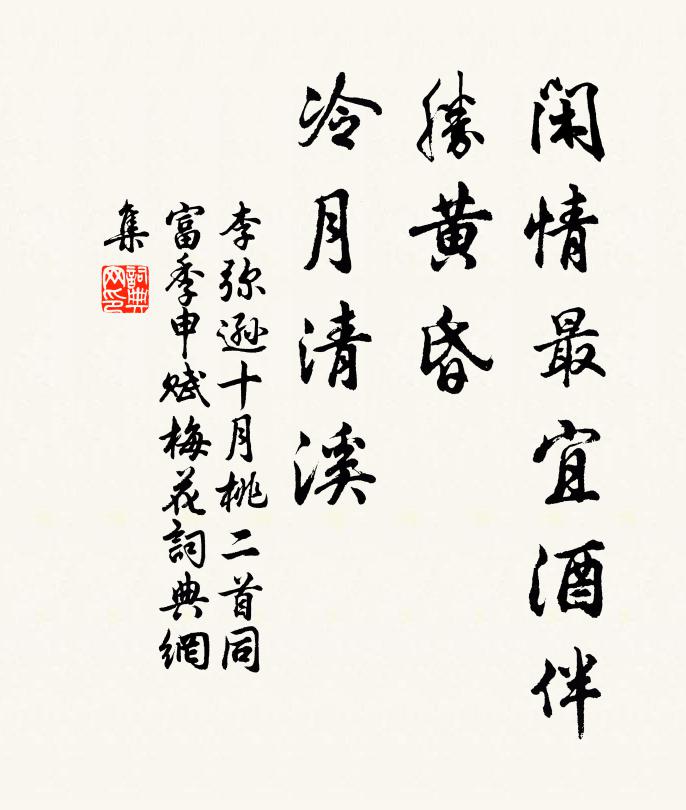 閑情最宜酒伴
勝黄昏
冷月清溪
李弥遜十月桃二首同
富季申賦梅花詞典網
集
詞典
网印